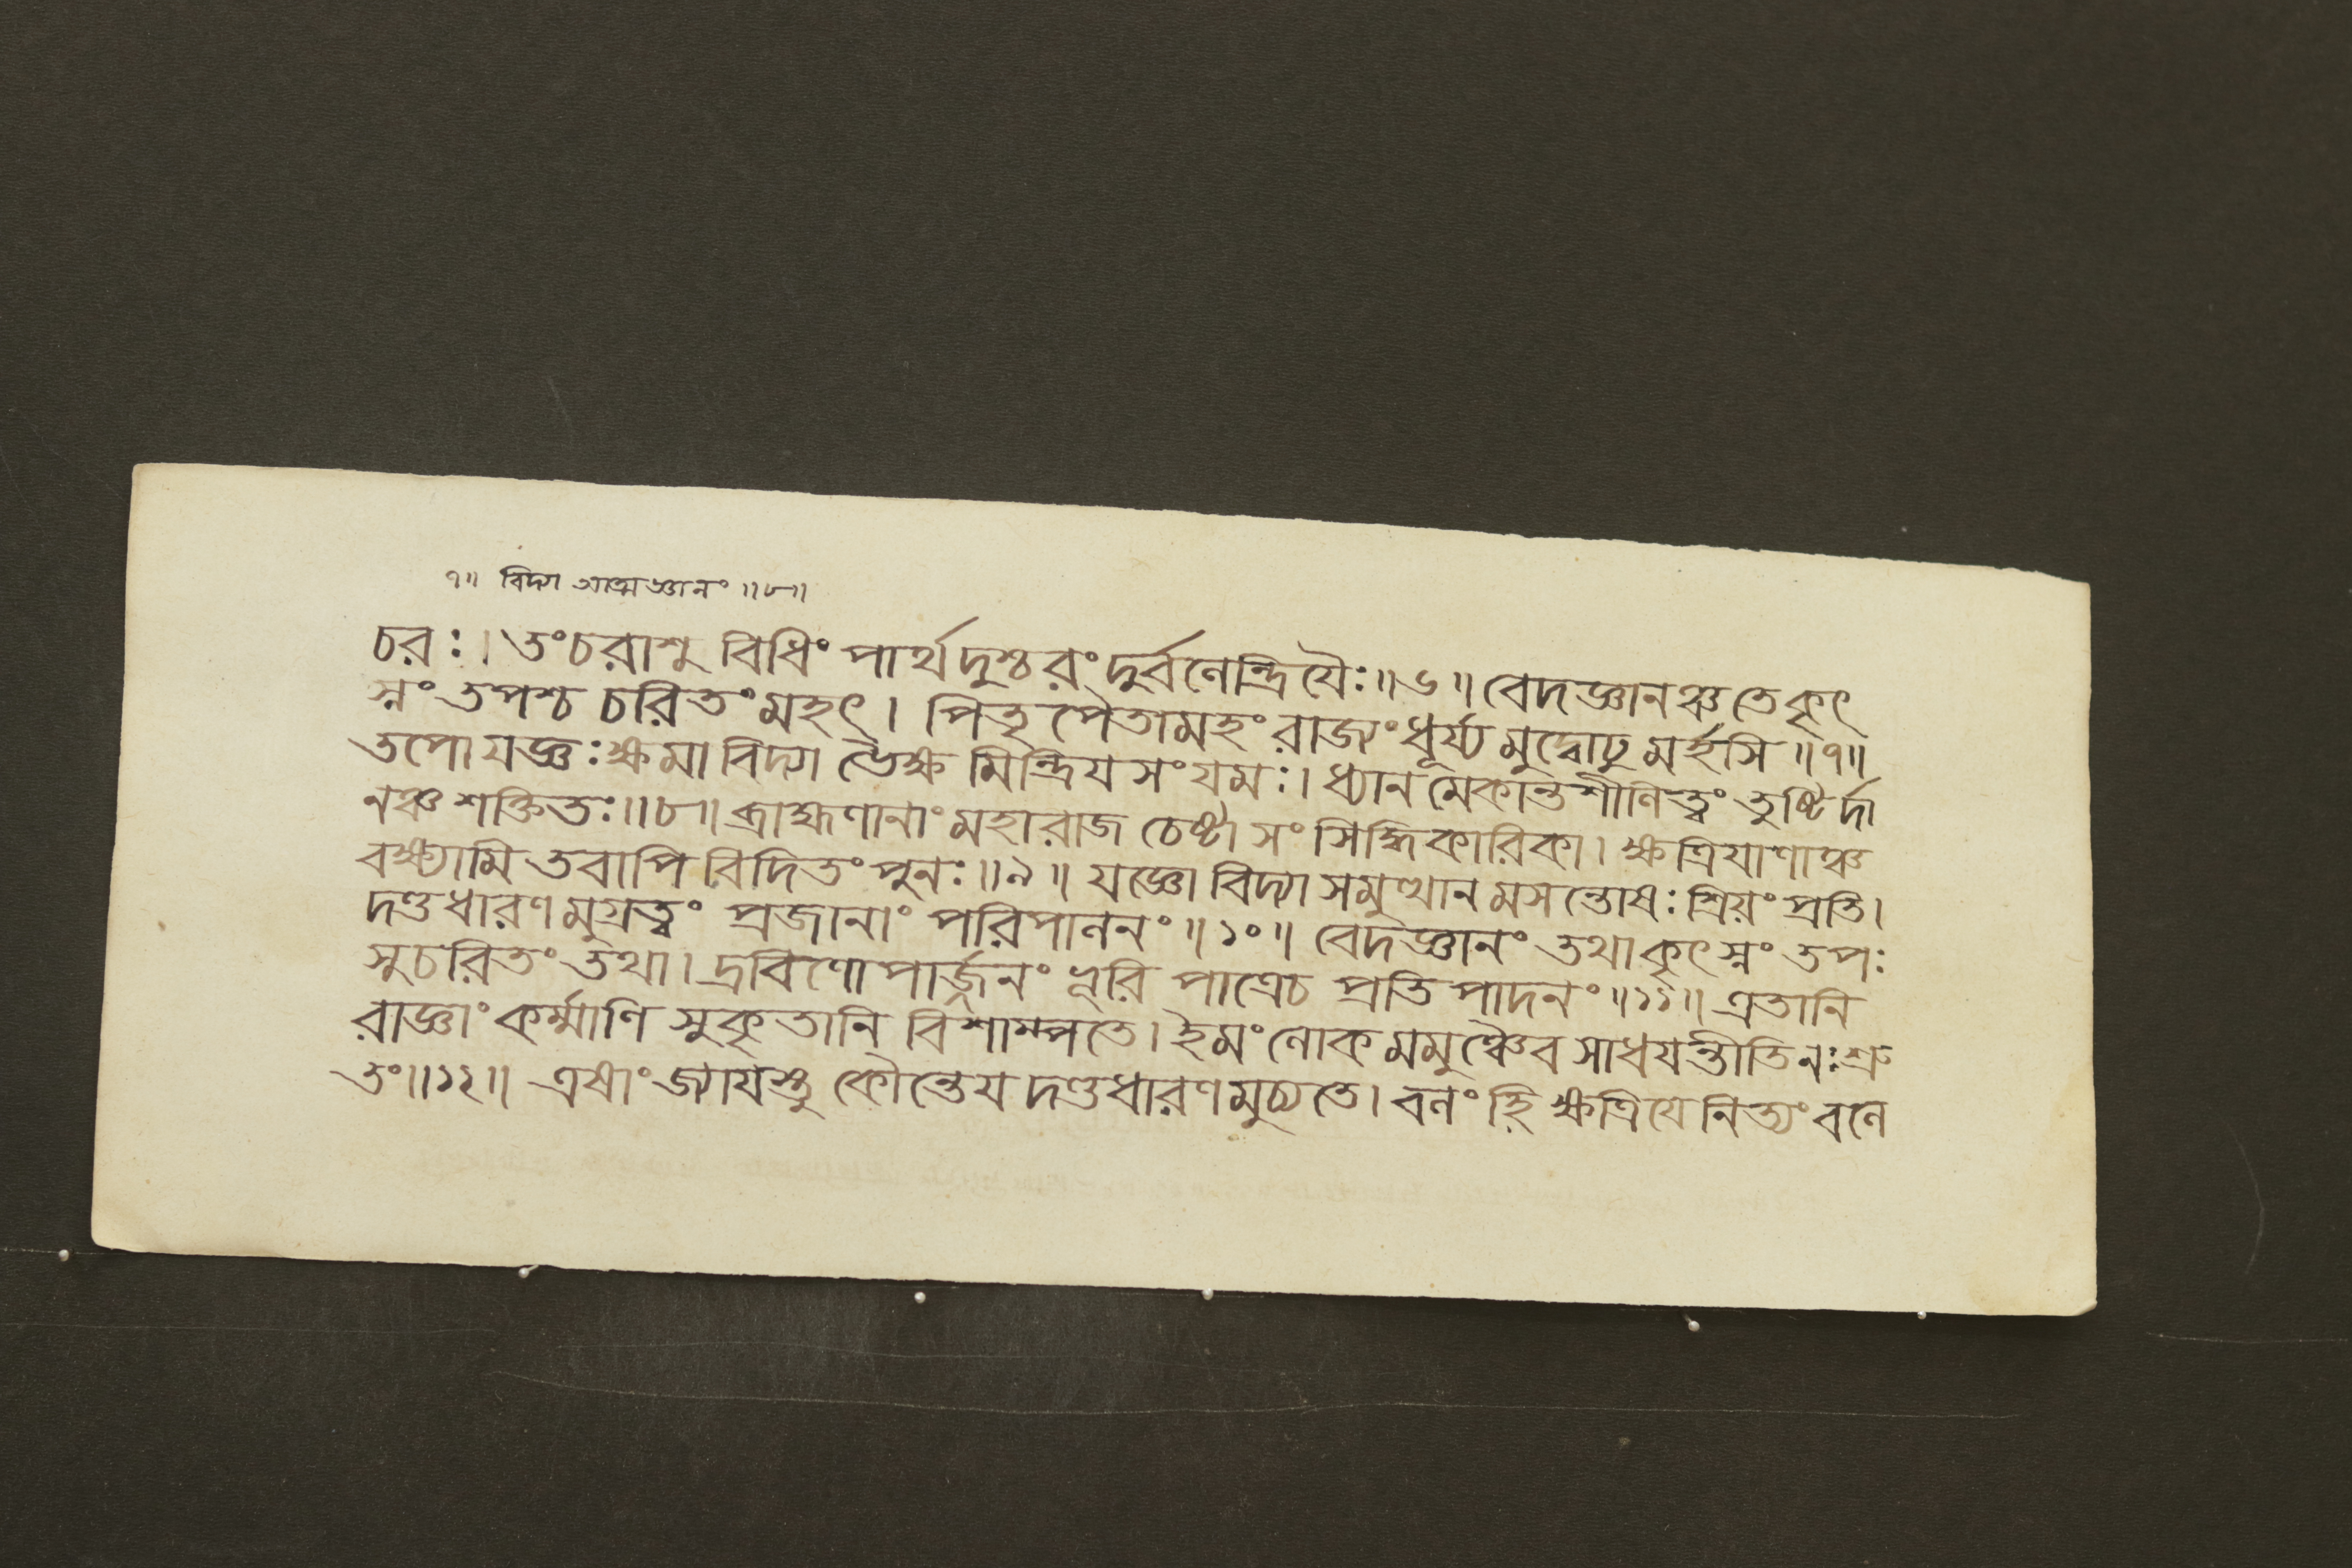 ৭॥ বিদ্যা আত্মজ্ঞানং ॥৮॥
চরঃ। তংচরাশু বিধিং পার্থ দুশ্চরং দুর্বলেন্দ্রিযৈঃ॥৬॥ বেদজ্ঞানঞ্চ তে কৃৎ
স্নং তপশ্চ চরিতং মহৎ। পিতৃপৈতামহং রাজ্যং ধূর্য্য মুদ্বোঢু মর্হসি॥৭॥
তপো যজ্ঞঃ ক্ষমা বিদ্যা ভৈক্ষ মিন্দ্রিয সংযমঃ। ধ্যান মেকান্তশীলিত্বং তুষ্টির্দা
নঞ্চ শক্তিতঃ॥৮॥ ব্রাহ্মণানাং মহারাজ চেষ্টা সং সিদ্ধিকারিকা। ক্ষত্রিযাণাঞ্চ
বক্ষ্যামি তবাপি বিদিতং পুনঃ॥৯॥ যজ্ঞো বিদ্যা সমুত্থান মসন্তোষঃ শ্রিয়ং প্রতি।
দণ্ডধারণ মুগ্রত্বং প্রজানাং পরিপালনং॥১০॥ বেদজ্ঞানং তথা কৃৎস্নং তপঃ
সুচরিতং তথা। দ্রবিণোপার্জ্জনং ভূরি পাত্রেচ প্রতিপাদনং॥১১॥ এতানি
রাজ্ঞাং কর্ম্মাণি সুকৃতানি বিশাম্পতে। ইমং লোক মমুঞ্চৈব সাধযন্তীতি নঃ শ্রু
তং॥১২॥ এষাং জ্যাযস্তু কৌন্তেয দণ্ডধারণ মুচ্যতে। বলং হি ক্ষত্রিযে নিত্যং বলে